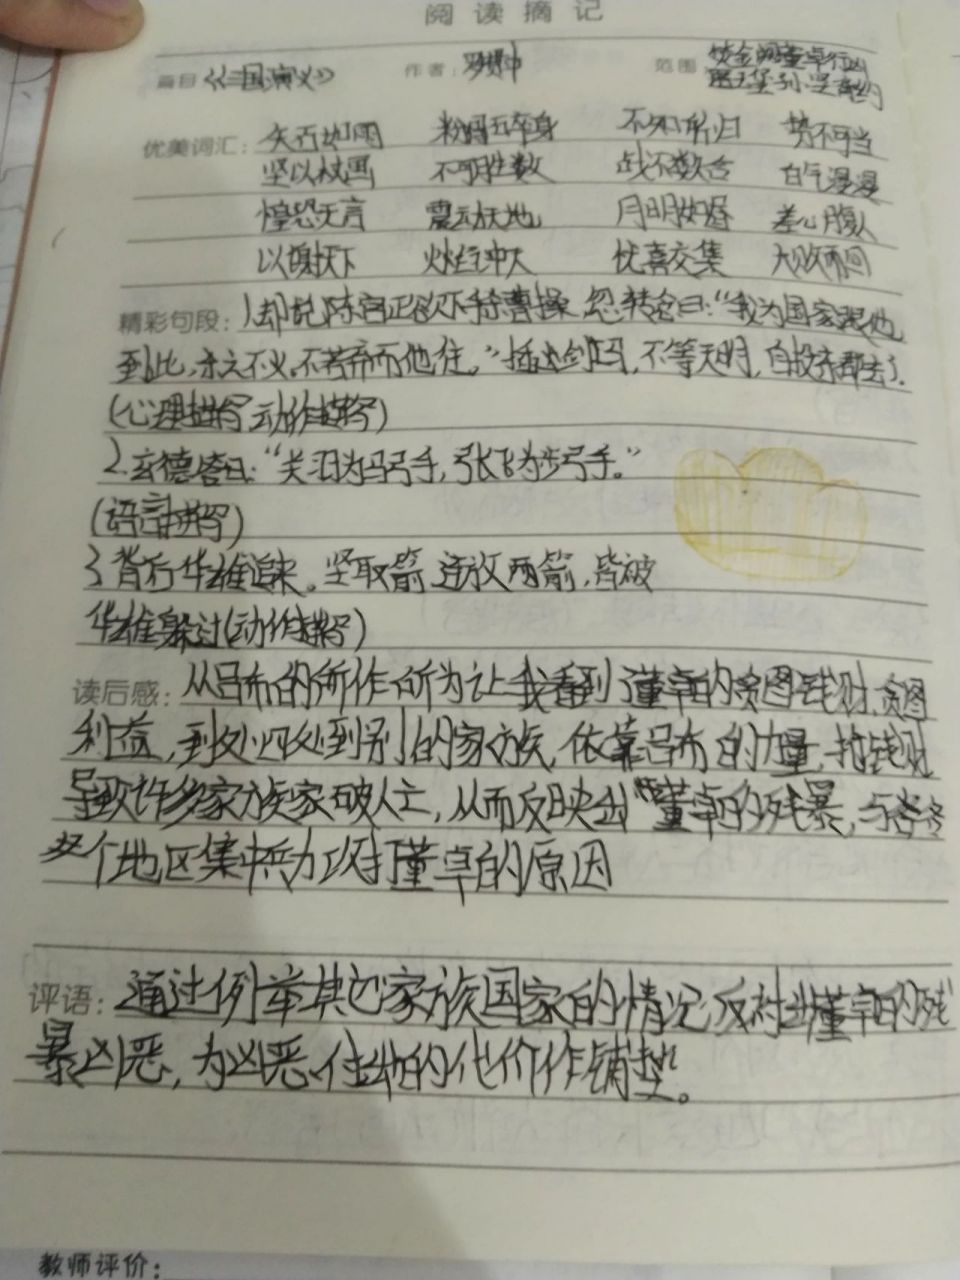 阅读摘记
篇目《三国演义》 作者：罗贯中 范围 焚金阙董卓行凶
匿玉玺孙坚背约
优美词汇：矢石如雨 粉骨碎身 不知所归 势不可当
坚以板图 不可胜数 战不数合 白气漫漫
惶恐无言 震动天地 月明如昼 差心腹人
以谢天下 火焰冲天 忧喜交集 大败而回
精彩句段：1.却说陈宫正欲下手杀曹操，忽转念曰："我为国家跟他
到此，杀之不义。不若弃而他往。"插剑上马，不等天明，自投东郡去了.
(心理描写 动作描写)
2.玄德答曰："关羽为马弓手，张飞为步弓手。"
(语言描写)
3.背后华雄追来。坚取箭，连放两箭，皆被
华雄躲过(动作描写)
读后感：从吕布的所作所为让我看到了董卓的贪图钱财，贪图
利益，到处四处到别的家族，依靠吕布的力量，抢钱财
导致许多家族家破人亡，从而反映出董卓的残暴，与
个地区集中兵力攻打董卓的原因
评语：通过例举其它家族国家的情况反衬出董卓的残
暴凶恶，为凶恶付出的代价作铺垫。
教师评价：